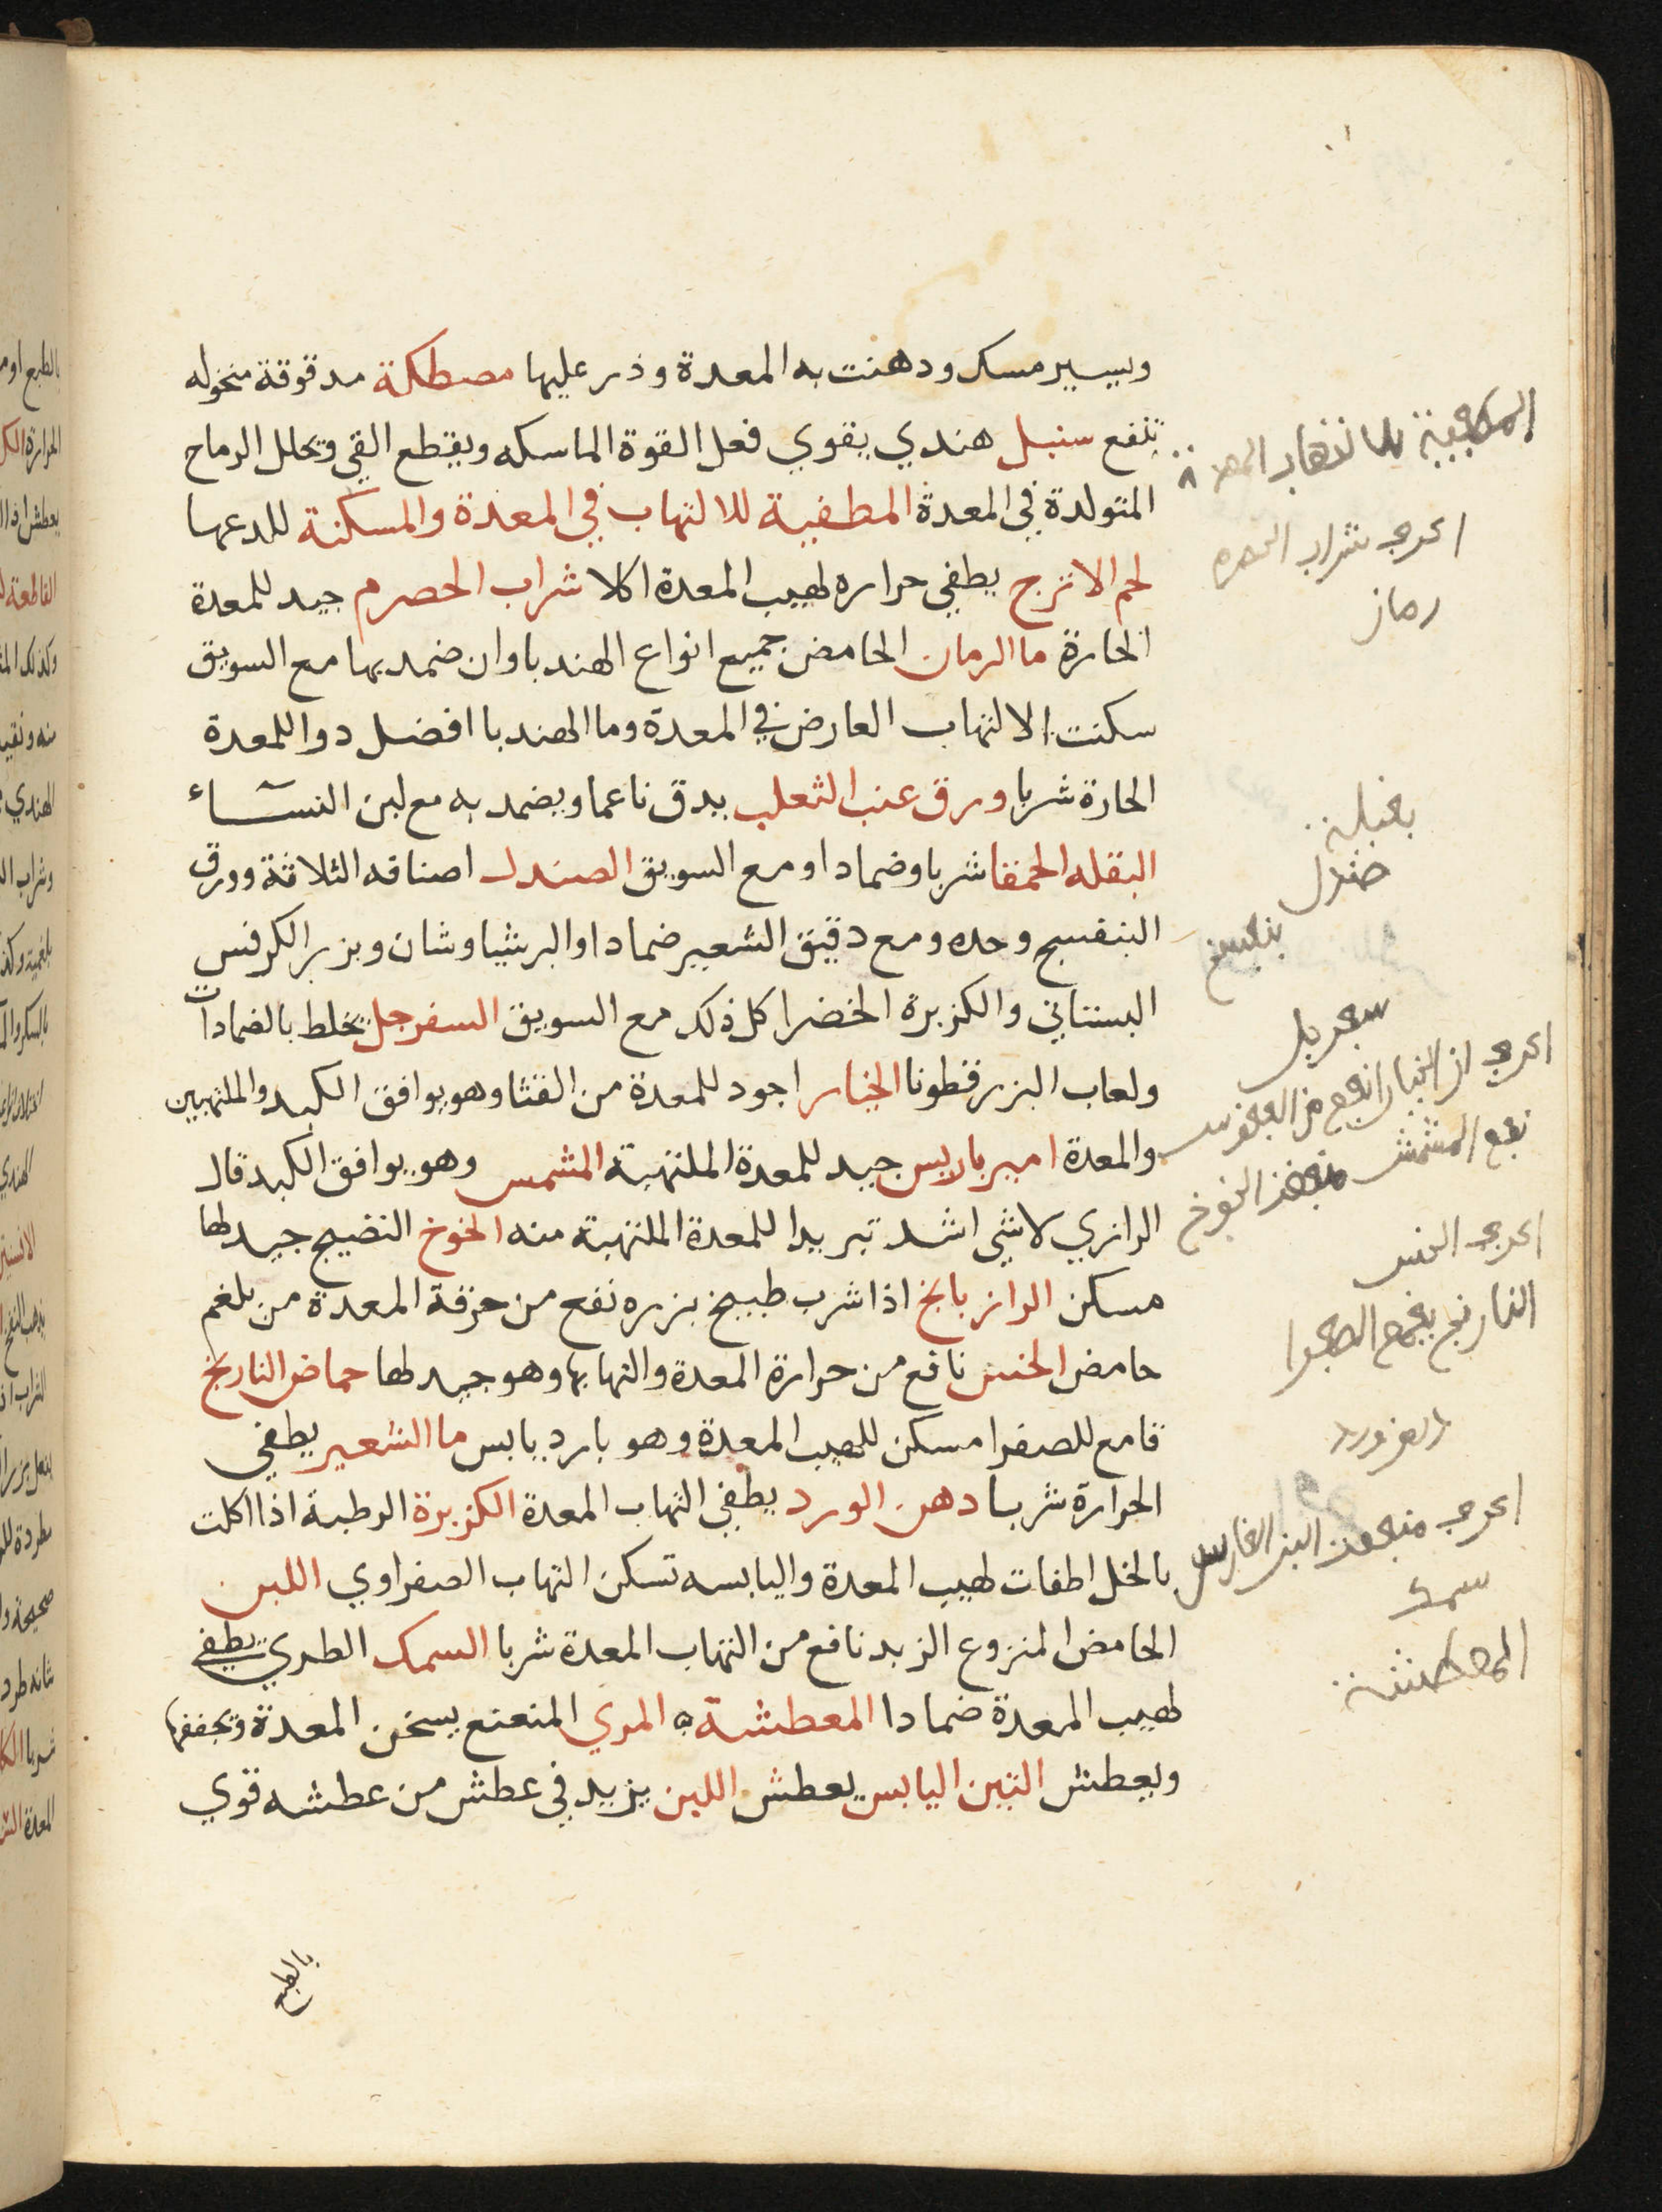 ويسير مسك ودهنت به المعدة وذر عليها مصطكة مدقوقة منخوله
نفع سنبل هندي يقوي فعل القوة الماسكه ويقطع القي ويحلل الرياح
المتولدة في المعدة المطفية للالتهاب في المعدة والمسكنة للدعها
لحم الاترج يطفي حراره لهيب المعدة اكلا شراب الحصرم جيد للمعدة
الحارة ما الرمان الحامض جميع انواع الهندبا وان ضمد بها مع السويق
سكنت الالتهاب العارض في المعدة وما الهندبا افضل دوا للمعدة
الحارة شربا ورق عنب الثعلب يدق ناعما ويضمد به مع لبن النساء
البقله الحمقا شربا وضمادا ومع السويق الصندل اصنافه الثلاثة وورق
البنفسج وحده ومع دقيق الشعير ضمادا والبرشياوشان وبزر الكرفس
البستاني والكزبرة الخضرا كل ذلك مع السويق السفرجل يخلط بالضمادات
ولعاب البزرقطونا الخيار اجود للمعدة من القثا وهو يوافق الكبد والملتهبين
والمعدة امير باريس جيد للمعدة الملتهبة المشمس وهو يوافق الكبد قال
الرازي لا شي اشد تبريدا للمعدة الملتهبة منه الخوخ النضيج جيد لها
مسكن الرازيانج اذا شرب طبيخ بزره نفع من حرقة المعدة من بلغم
حامض الخس نافع من حرارة المعدة والتهابها وهو جيد لها حماض النارنج
قامع للصفرا مسكن للهيب المعدة وهو بارد يابس ما الشعير يطفي
الحرارة شربا دهن الورد يطفي التهاب المعدة الكزبرة الرطبة اذا اكلت
بالخل اطفات لهيب المعدة واليابسه تسكن التهاب الصفراوي اللبن
الحامض المنزوع الزبد نافع من التهاب المعدة شربا السمك الطري يطفي
لهيب المعدة ضمادا المعطشة المري المنعنع يسخن المعدة ويجففها
ويعطش التين اليابس يعطش اللبن يزيد في عطش من عطشه قوي
بالطبع
رمان
صندل
نفع المشمش
سمك